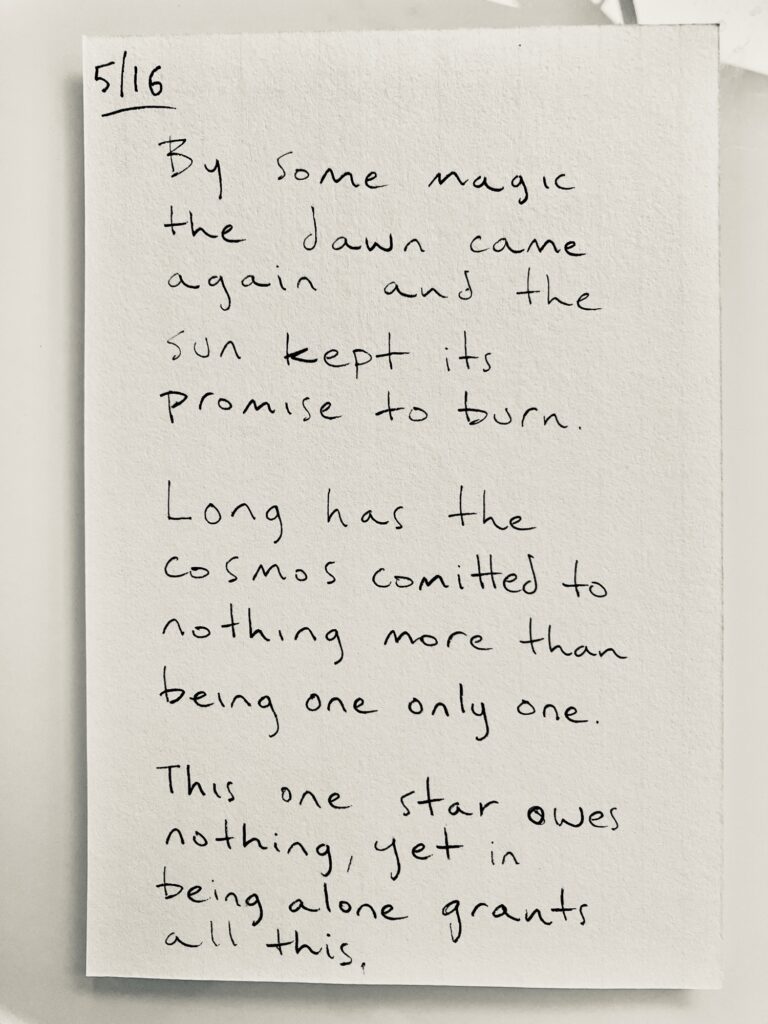 5/16
By some magic
the dawn came
again and the
sun kept its
promise to burn.
Long has the
cosmos comitted to
nothing more than
being one only one.
This one star owes
nothing, yet in
being alone grants
all this.